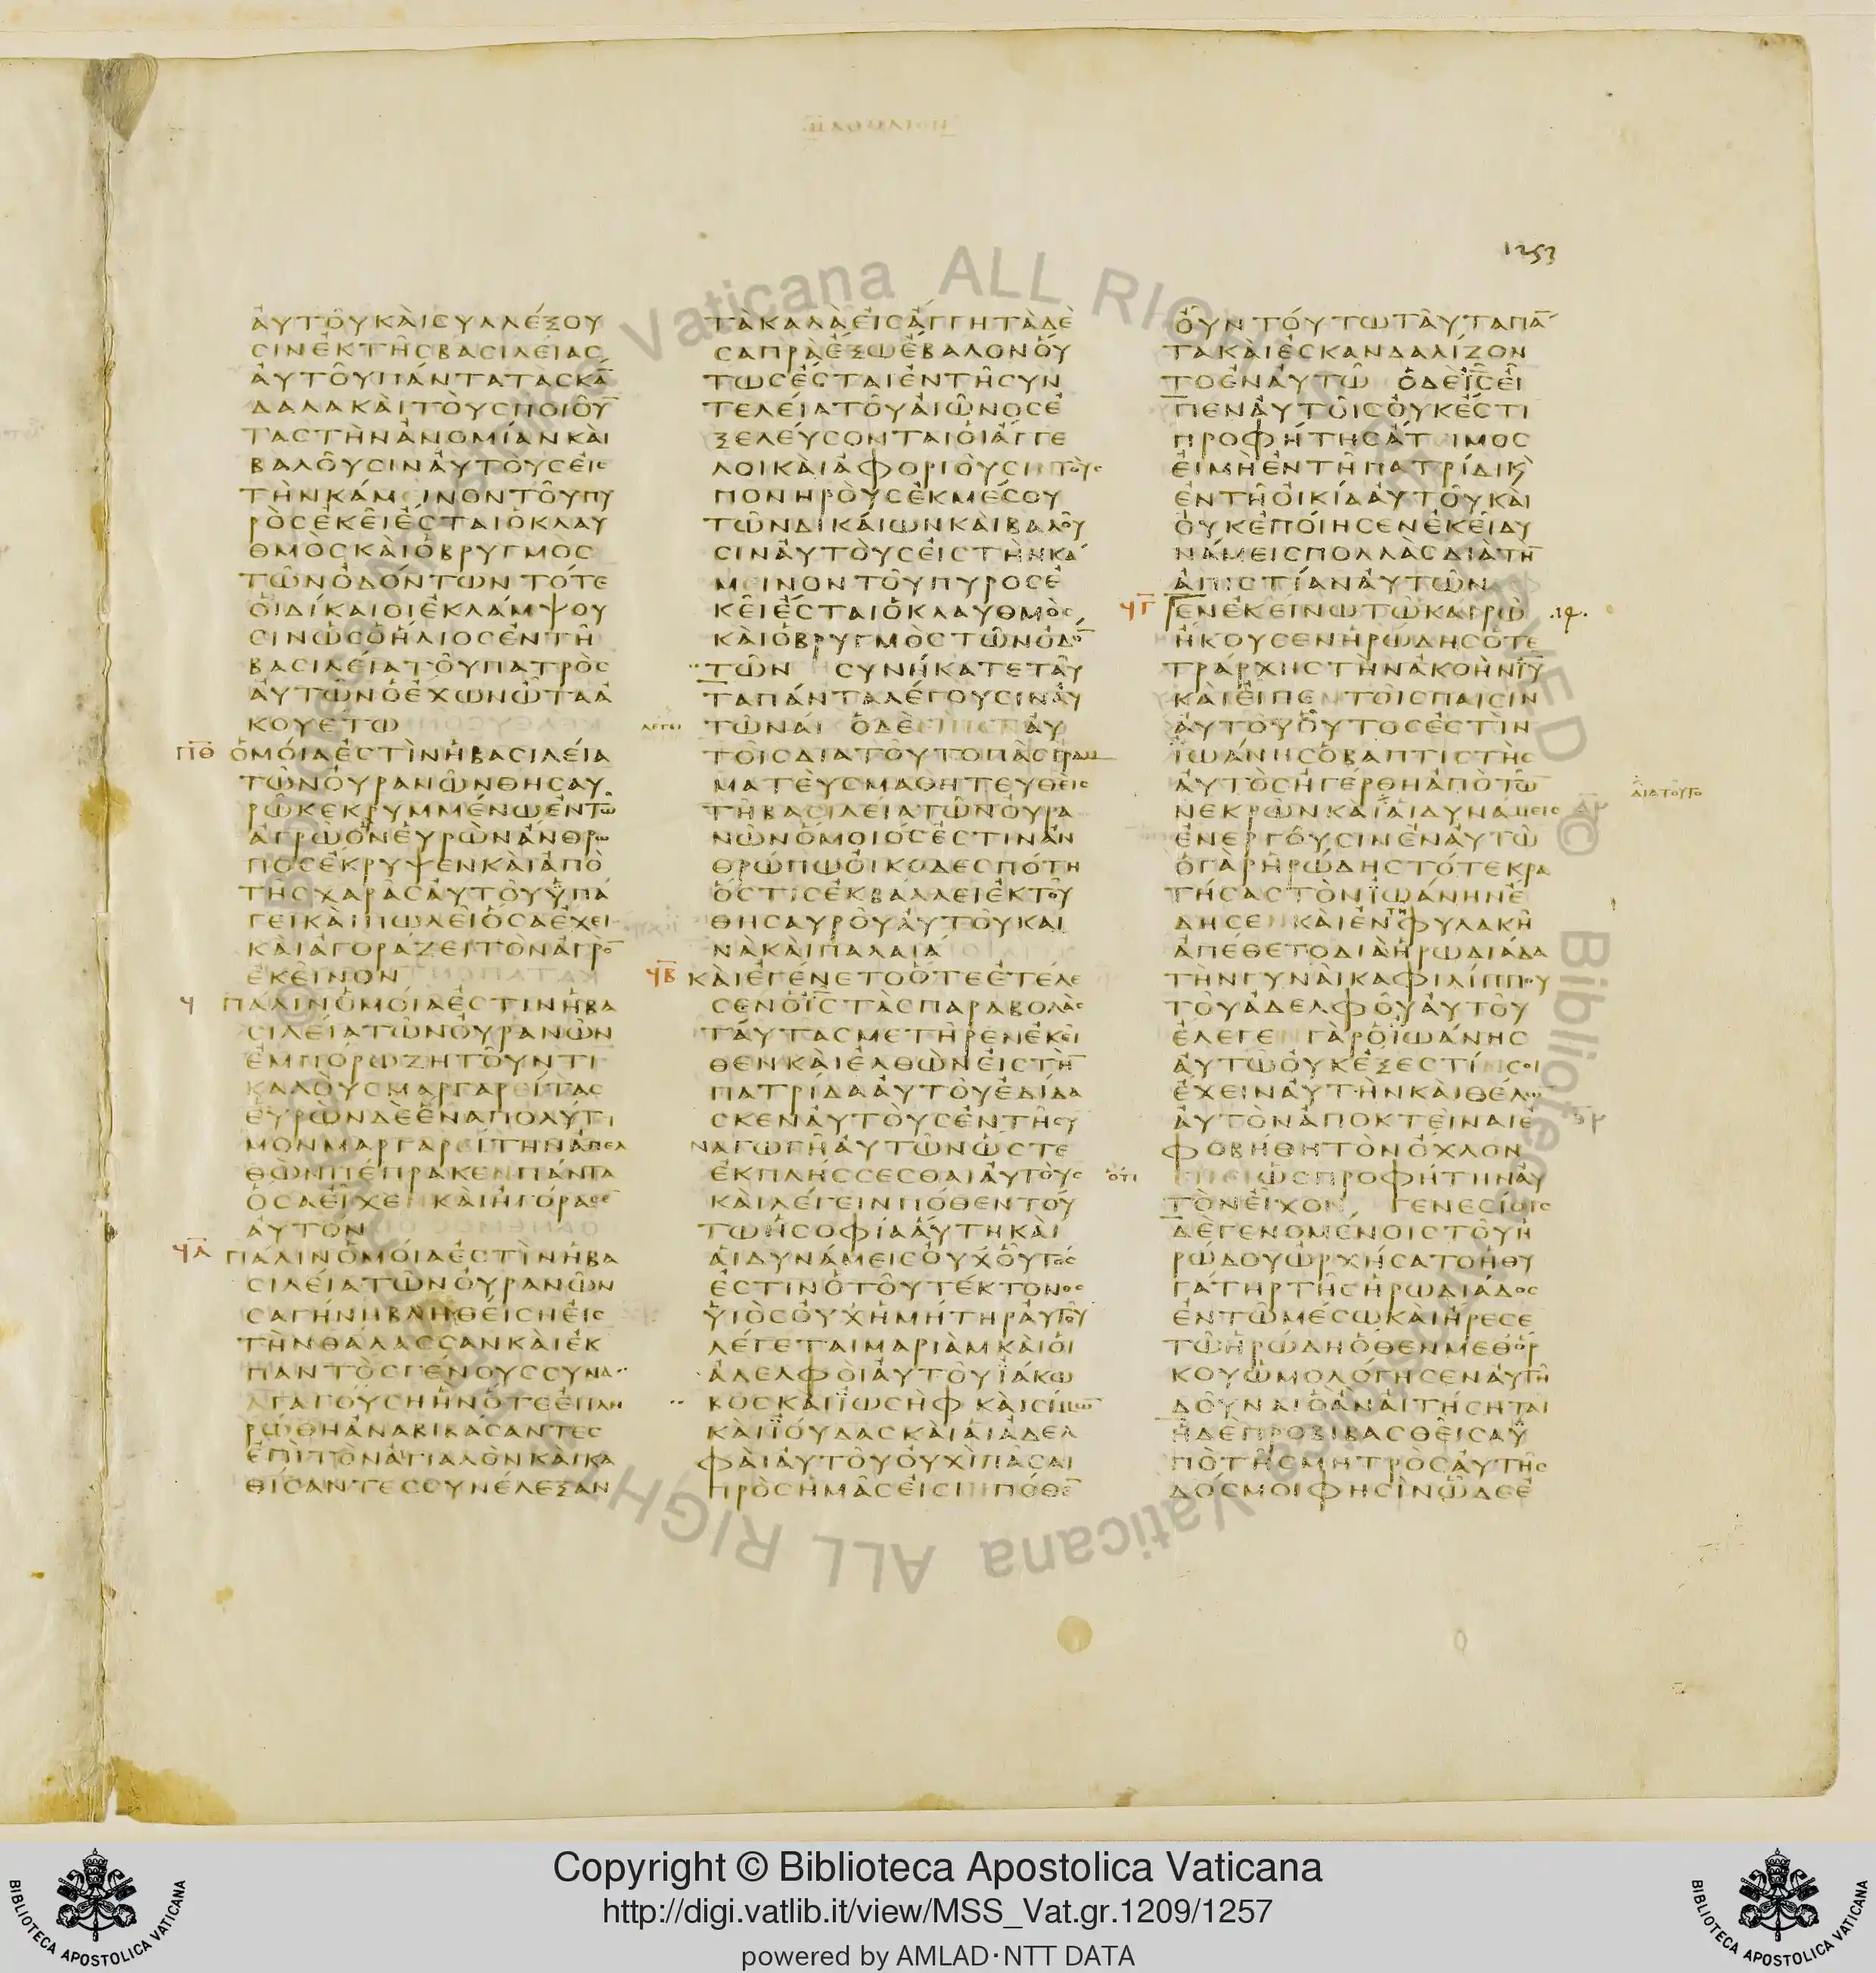 1253
ΑΥΤΟΥΚΑΙΣΥΛΛΕΞΟΥ
ΣΙΝΕΚΤΗΣΒΑΣΙΛΕΙΑΣ
ΑΥΤΟΥΠΑΝΤΑΤΑΣΚΑ̅
ΔΑΛΑΚΑΙΤΟΥΣΠΟΙΟΥ̅
ΤΑΣΤΗΝΑΝΟΜΙΑΝΚΑΙ
ΒΑΛΟΥΣΙΝΑΥΤΟΥΣΕΙΣ
ΤΗΝΚΑΜΙΝΟΝΤΟΥΠΥ
ΡΟΣΕΚΕΙΕΣΤΑΙΟΚΛΑΥ
ΘΜΟΣΚΑΙΟΒΡΥΓΜΟΣ
ΤΩΝΟΔΟΝΤΩΝ ΤΟΤΕ
ΟΙΔΙΚΑΙΟΙΕΚΛΑΜΨΟΥ
ΣΙΝΩΣΟΗΛΙΟΣΕΝΤΗ
ΒΑΣΙΛΕΙΑΤΟΥΠΑΤΡΟΣ
ΑΥΤΩΝΟΕΧΩΝΩΤΑΑ
ΚΟΥΕΤΩ
ΠΘ ΟΜΟΙΑΕΣΤΙΝΗΒΑΣΙΛΕΙΑ
ΤΩΝΟΥΡΑΝΩΝΘΗΣΑΥ
ΡΩΚΕΚΡΥΜΜΕΝΩΕΝΤΩ
ΑΓΡΩΟΝΕΥΡΩΝΑΝΘΡΩ
ΠΟΣΕΚΡΥΨΕΝΚΑΙΑΠΟ
ΤΗΣΧΑΡΑΣΑΥΤΟΥΥΠΑ
ΓΕΙΚΑΙΠΩΛΕΙΟΣΑΕΧΕΙ
ΚΑΙΑΓΟΡΑΖΕΙΤΟΝΑΓΡΟ̅
ΕΚΕΙΝΟΝ
Ϥ ΠΑΛΙΝΟΜΟΙΑΕΣΤΙΝΗΒΑ
ΣΙΛΕΙΑΤΩΝΟΥΡΑΝΩΝ
ΕΜΠΟΡΩΖΗΤΟΥΝΤΙ
ΚΑΛΟΥΣΜΑΡΓΑΡΕΙΤΑΣ
ΕΥΡΩΝΔΕΕΝΑΠΟΛΥΤΙ
ΜΟΝΜΑΡΓΑΡΕΙΤΗΝΑΠΕΛ
ΘΩΝΠΕΠΡΑΚΕΝΠΑΝΤΑ
ΟΣΑΕΙΧΕΝΚΑΙΗΓΟΡΑΣΕ̅
ΑΥΤΟΝ
ϤΑ ΠΑΛΙΝΟΜΟΙΑΕΣΤΙΝΗΒΑ
ΣΙΛΕΙΑΤΩΝΟΥΡΑΝΩΝ
ΣΑΓΗΝΗΒΛΗΘΕΙΣΗΕΙΣ
ΤΗΝΘΑΛΑΣΣΑΝΚΑΙΕΚ
ΠΑΝΤΟΣΓΕΝΟΥΣΣΥΝΑ
ΓΑΓΟΥΣΗΗΝΟΤΕΕΠΛΗ
ΡΩΘΗΑΝΑΒΙΒΑΣΑΝΤΕΣ
ΕΠΙΤΟΝΑΙΓΙΑΛΟΝΚΑΙΚΑ
ΘΙΣΑΝΤΕΣΣΥΝΕΛΕΞΑΝ
ΤΑΚΑΛΑΕΙΣΑΓΓΗΤΑΔΕ
ΣΑΠΡΑΕΞΩΕΒΑΛΟΝΟΥ
ΤΩΣΕΣΤΑΙΕΝΤΗΣΥΝ
ΤΕΛΕΙΑΤΟΥΑΙΩΝΟΣΕ
ΞΕΛΕΥΣΟΝΤΑΙΟΙΑΓΓΕ
ΛΟΙΚΑΙΑΦΟΡΙΟΥΣΙΝΤΟΥΣ
ΠΟΝΗΡΟΥΣΕΚΜΕΣΟΥ
ΤΩΝΔΙΚΑΙΩΝΚΑΙΒΑΛΟΥ
ΣΙΝΑΥΤΟΥΣΕΙΣΤΗΝΚΑ
ΜΕΙΝΟΝΤΟΥΠΥΡΟΣΕ
ΚΕΙΕΣΤΑΙΟΚΛΑΥΘΜΟΣ
ΚΑΙΟΒΡΥΓΜΟΣΤΩΝΟΔΟ̅
ΤΩΝ ΣΥΝΗΚΑΤΕΤΑΥ
ΤΑΠΑΝΤΑΛΕΓΟΥΣΙΝΑΥ
ΛΕΓΕΙ ΤΩΝΑΙ ΟΔΕΕΙΠΕΝΑΥ
ΤΟΙΣΔΙΑΤΟΥΤΟΠΑΣΓΡΑΜ
ΜΑΤΕΥΣΜΑΘΗΤΕΥΘΕΙΣ
ΤΗΒΑΣΙΛΕΙΑΤΩΝΟΥΡΑ
ΝΩΝΟΜΟΙΟΣΕΣΤΙΝΑΝ
ΘΡΩΠΩΟΙΚΟΔΕΣΠΟΤΗ
ΟΣΤΙΣΕΚΒΑΛΛΕΙΕΚΤΟΥ
ΘΗΣΑΥΡΟΥΑΥΤΟΥΚΑΙ
ΝΑΚΑΙΠΑΛΑΙΑ
ϤΒ ΚΑΙΕΓΕΝΕΤΟΟΤΕΕΤΕΛΕ
ΣΕΝΟΙ̅Σ̅ΤΑΣΠΑΡΑΒΟΛΑΣ
ΤΑΥΤΑΣΜΕΤΗΡΕΝΕΚΕΙ
ΘΕΝΚΑΙΕΛΘΩΝΕΙΣΤΗ̅
ΠΑΤΡΙΔΑΑΥΤΟΥΕΔΙΔΑ
ΣΚΕΝΑΥΤΟΥΣΕΝΤΗΣΥ
ΝΑΓΩΓΗΑΥΤΩΝΩΣΤΕ
ΕΚΠΛΗΣΣΕΣΘΑΙΑΥΤΟΥΣ
ΚΑΙΛΕΓΕΙΝΠΟΘΕΝΤΟΥ
ΤΩΗΣΟΦΙΑΑΥΤΗΚΑΙ
ΑΙΔΥΝΑΜΕΙΣΟΥΧΟΥΤΟΣ
ΕΣΤΙΝΟΤΟΥΤΕΚΤΟΝΟΣ
ΥΙΟΣΟΥΧΗΜΗΤΗΡΑΥΤΟΥ
ΛΕΓΕΤΑΙΜΑΡΙΑΜΚΑΙΟΙ
ΑΔΕΛΦΟΙΑΥΤΟΥΪΑΚΩ
ΒΟΣΚΑΙΪΩΣΗΦ ΚΑΙΣΙΜΩ̅
ΚΑΙΪΟΥΔΑΣΚΑΙΑΙΑΔΕΛ
ΦΑΙΑΥΤΟΥΟΥΧΙΠΑΣΑΙ
ΠΡΟΣΗΜΑΣΕΙΣΙΝΠΟΘΕ̅
ΟΥΝ ΤΟΥΤΩΤΑΥΤΑΠΑ̅
ΤΑΚΑΙΕΣΚΑΝΔΑΛΙΖΟΝ
ΤΟΕΝΑΥΤΩ ΟΔΕΙ̅Σ̅ΕΙ
ΠΕΝΑΥΤΟΙΣΟΥΚΕΣΤΙ
ΠΡΟΦΗΤΗΣΑΤΙΜΟΣ
ΕΙΜΗΕΝΤΗΠΑΤΡΙΔΙΚϏ
ΕΝΤΗΟΙΚΙΑΑΥΤΟΥΚΑΙ
ΟΥΚΕΠΟΙΗΣΕΝΕΚΕΙΔΥ
ΝΑΜΕΙΣΠΟΛΛΑΣΔΙΑΤΗ̅
ΑΠΙΣΤΙΑΝΑΥΤΩΝ
ϤΓ ΕΝΕΚΕΙΝΩΤΩΚΑΙΡΩ .14.
ΗΚΟΥΣΕΝΗΡΩΔΗΣΟΤΕ
ΤΡΑΡΧΗΣΤΗΝΑΚΟΗΝΙ̅Υ̅
ΚΑΙΕΙΠΕΝΤΟΙΣΠΑΙΣΙΝ
ΑΥΤΟΥΟΥΤΟΣΕΣΤΙΝ
ΪΩΑΝΗΣΟΒΑΠΤΙΣΤΗΣ
ΑΥΤΟΣΗΓΕΡΘΗΑΠΟΤΩ̅ ΔΙΑΤΟΥΤΟ
ΝΕΚΡΩΝΚΑΙΑΙΔΥΝΑΜΕΙΣ
ΕΝΕΡΓΟΥΣΙΝΕΝΑΥΤΩ
ΟΓΑΡΗΡΩΔΗΣΤΟΤΕΚΡΑ
ΤΗΣΑΣΤΟΝΪΩΑΝΗΝΕ
ΔΗΣΕΝΚΑΙΕΝΤΗΦΥΛΑΚΗ
ΑΠΕΘΕΤΟΔΙΑΗΡΩΔΙΑΔΑ
ΤΗΝΓΥΝΑΙΚΑΦΙΛΙΠΠΟΥ
ΤΟΥΑΔΕΛΦΟΥΑΥΤΟΥ
ΕΛΕΓΕΝΓΑΡΟΪΩΑΝΗΣ
ΑΥΤΩΟΥΚΕΞΕΣΤΙΝΣΟΙ
ΕΧΕΙΝΑΥΤΗΝΚΑΙΘΕΛΩΝ
ΑΥΤΟΝΑΠΟΚΤΕΙΝΑΙΕ
ΦΟΒΗΘΗΤΟΝΟΧΛΟΝ
ΟΤΙ ΕΠΕΙΩΣΠΡΟΦΗΤΗΝΑΥ
ΤΟΝΕΙΧΟΝ ΓΕΝΕΣΙΟΙΣ
ΔΕΓΕΝΟΜΕΝΟΙΣΤΟΥΗ
ΡΩΔΟΥΩΡΧΗΣΑΤΟΗΘΥ
ΓΑΤΗΡΤΗΣΗΡΩΔΙΑΔΟΣ
ΕΝΤΩΜΕΣΩΚΑΙΗΡΕΣΕ
ΤΩΗΡΩΔΗΟΘΕΝΜΕΘΟΡ
ΚΟΥΩΜΟΛΟΓΗΣΕΝΑΥΤΗ
ΔΟΥΝΑΙΟΑΝΑΙΤΗΣΗΤΑΙ
ΗΔΕΠΡΟΒΙΒΑΣΘΕΙΣΑΥ
ΠΟΤΗΣΜΗΤΡΟΣΑΥΤΗΣ
ΔΟΣΜΟΙΦΗΣΙΝΩΔΕΕ
Copyright © Biblioteca Apostolica Vaticana
http://digi.vatlib.it/view/MSS_Vat.gr.1209/1257
powered by AMLAD·NTT DATA
BIBLIOTECA APOSTOLICA VATICANA
BIBLIOTECA APOSTOLICA VATICANA